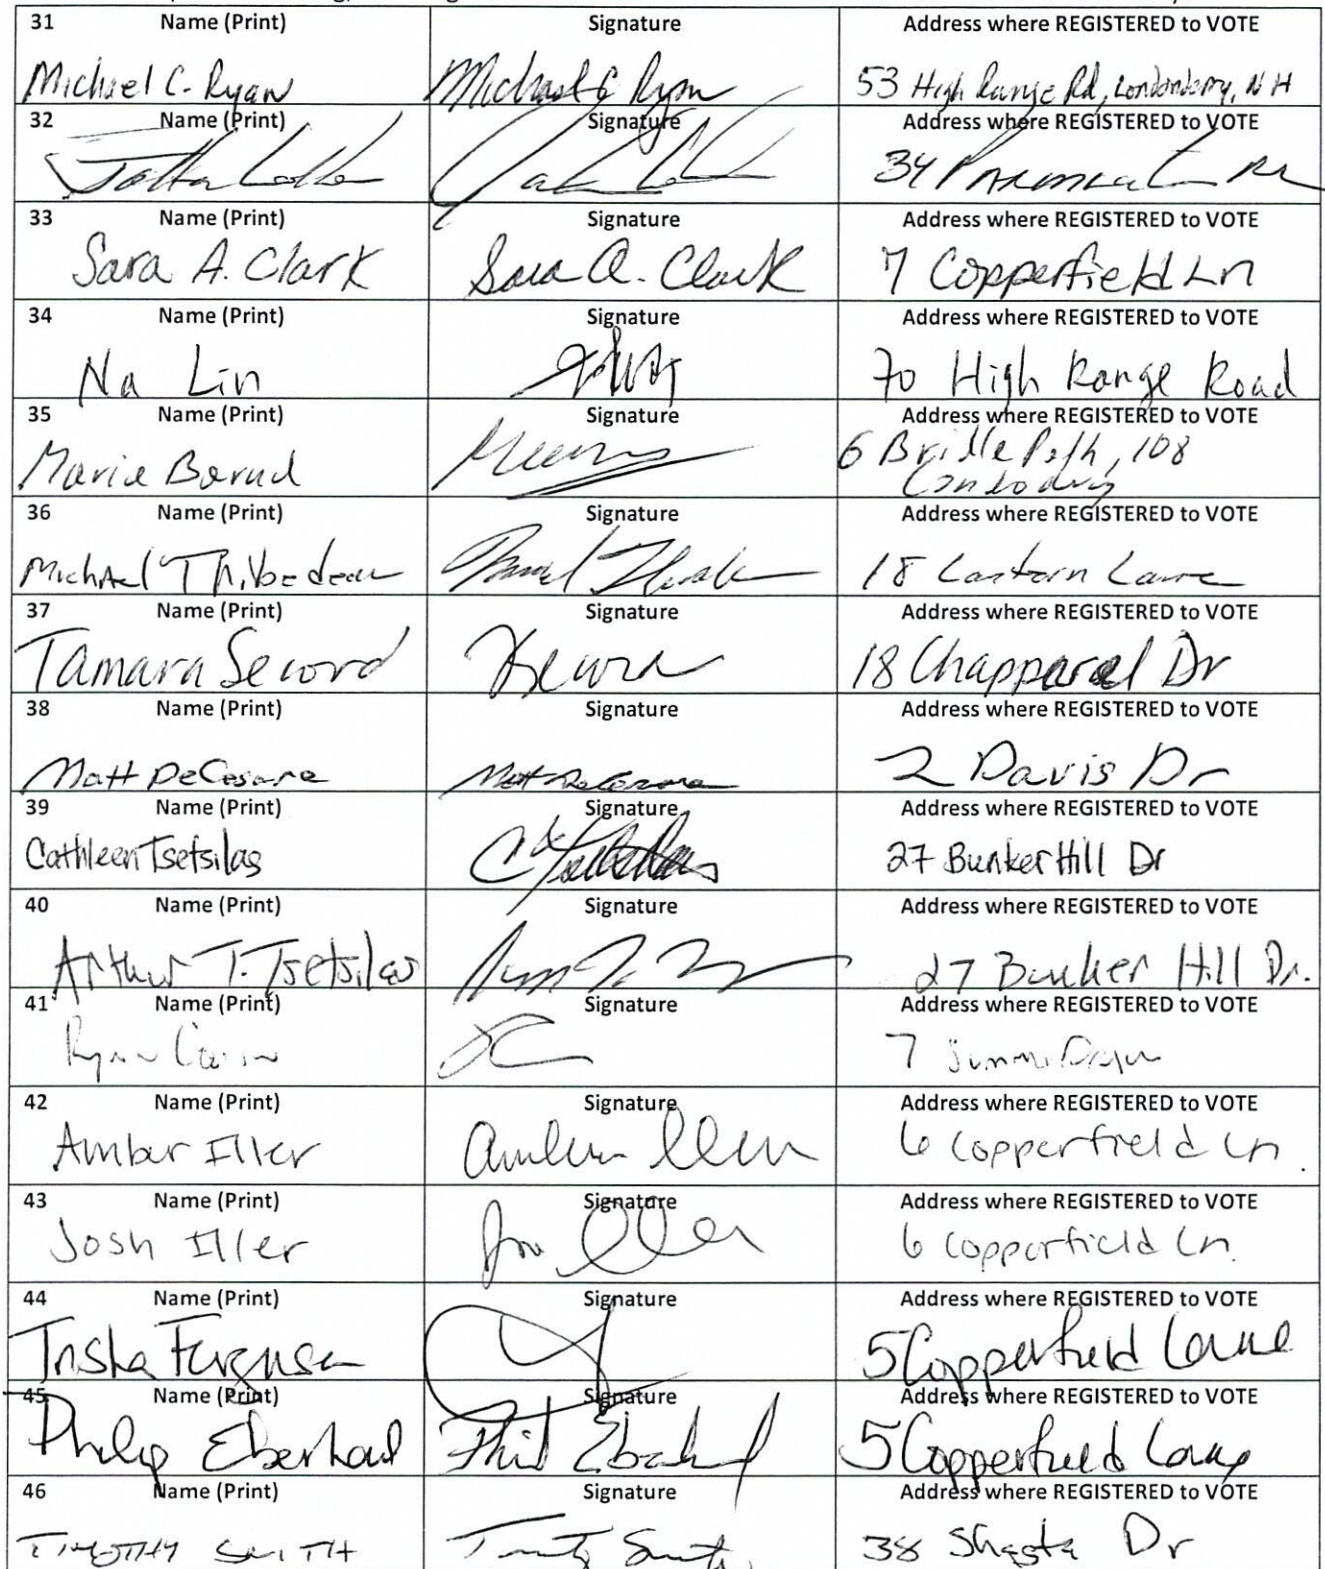 31 Name (Print) Signature Address where REGISTERED to VOTE
Michael C. Ryan Michael C Ryan 53 High Range Rd, Londonderry, NH
32 Name (Print) Signature Address where REGISTERED to VOTE
34
33 Name (Print) Signature Address where REGISTERED to VOTE
Sara A. Clark Sara A. Clark 7 Copperfield Ln
34 Name (Print) Signature Address where REGISTERED to VOTE
Na Lin 70 High Range Road
35 Name (Print) Signature Address where REGISTERED to VOTE
Maria 6 Path, 108
36 Name (Print) Signature Address where REGISTERED to VOTE
Michael Thibedeau 18 Lane
37 Name (Print) Signature Address where REGISTERED to VOTE
Tamara Secord 18 Chapparal Dr
38 Name (Print) Signature Address where REGISTERED to VOTE
Matt DeCesare Matt DeCesare 2 Davis Dr
39 Name (Print) Signature Address where REGISTERED to VOTE
Cathleen Tsetsilas 27 Bunker Hill Dr
40 Name (Print) Signature Address where REGISTERED to VOTE
Arthur T. Tsetsilas 27 Bunker Hill Dr.
41 Name (Print) Signature Address where REGISTERED to VOTE
Ryan 7
42 Name (Print) Signature Address where REGISTERED to VOTE
Amber Iller Amber Iller 6 Copperfield Ln.
43 Name (Print) Signature Address where REGISTERED to VOTE
Josh Iller 6 Copperfield Ln.
44 Name (Print) Signature Address where REGISTERED to VOTE
Trisha Ferguson 5 Copperfield Lane
45 Name (Print) Signature Address where REGISTERED to VOTE
Philip Eberhard 5 Copperfield Lane
46 Name (Print) Signature Address where REGISTERED to VOTE
TIMOTHY SMITH 38 Shasta Dr